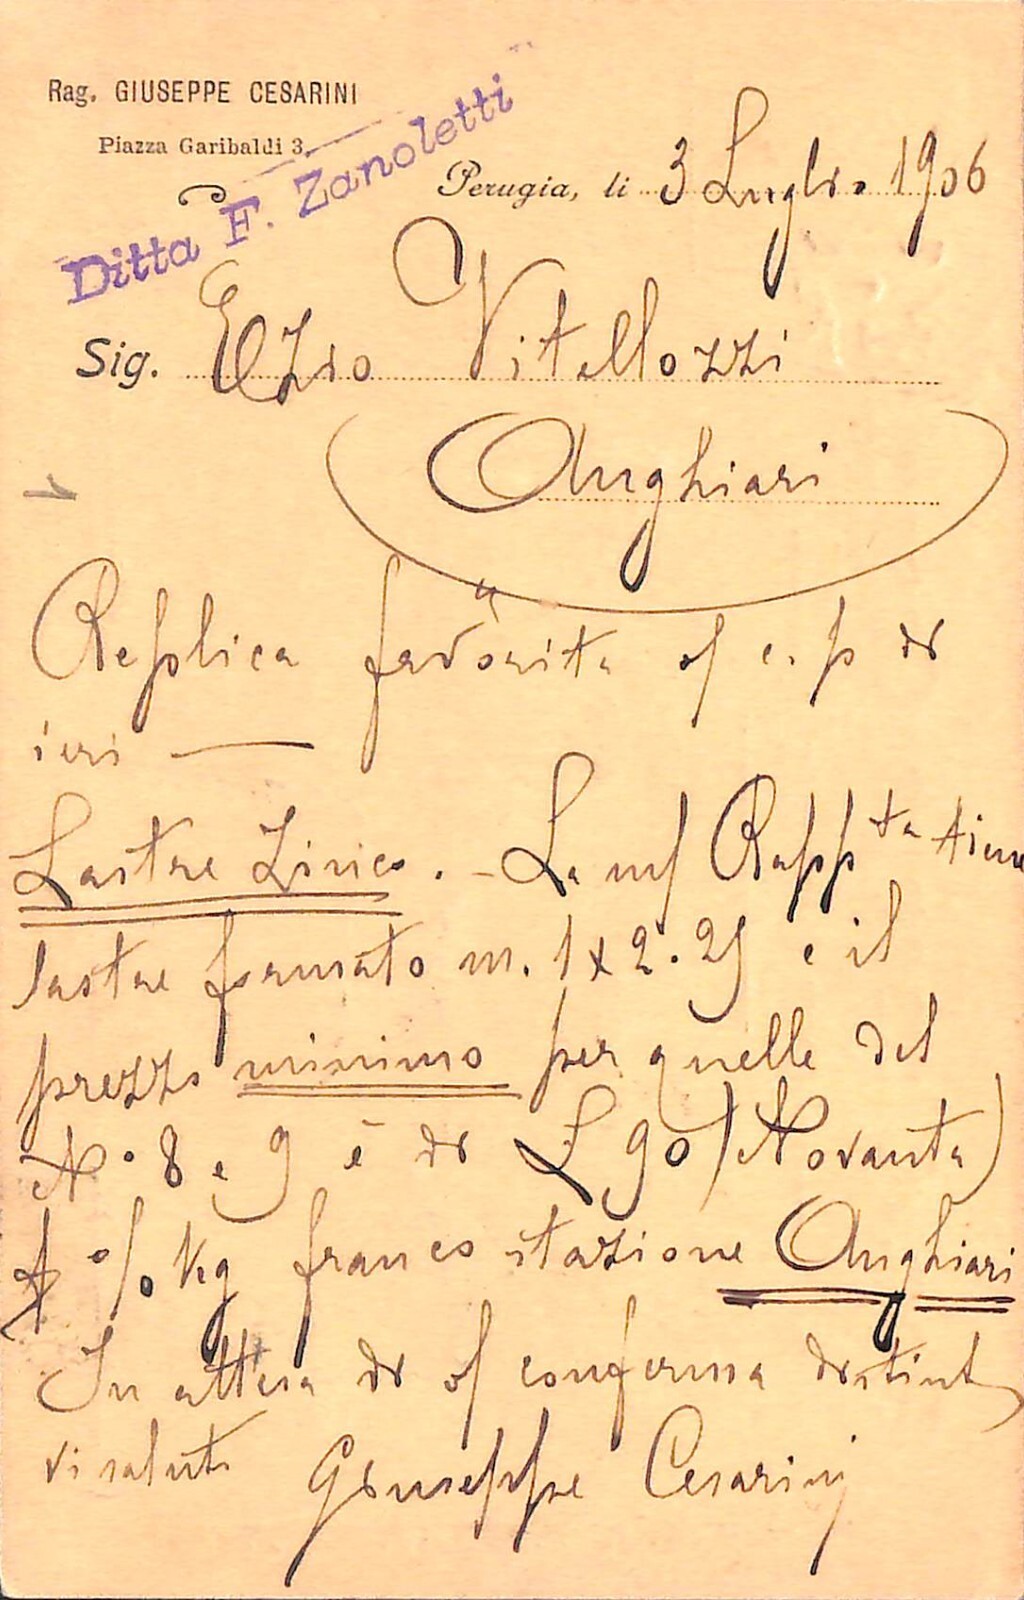 Rag. GIUSEPPE CESARINI
Piazza Garibaldi 3.
Ditta F. Zanoletti
Perugia, li 3 Luglio 1906
Sig. Ezio Vitellozzi
Anghiari
Replica favorita of c.p di
ieri —
Lastre Zinco. - La mf Rappta tiene
lastre formato m. 1 x 2.25 e il
prezzo minimo per quelle del
N° 8 e 9 è di £ 90 (Novanta)
% Kg franco stazione Anghiari
In attesa di of conferma distint
vi saluti Giuseppe Cesarini